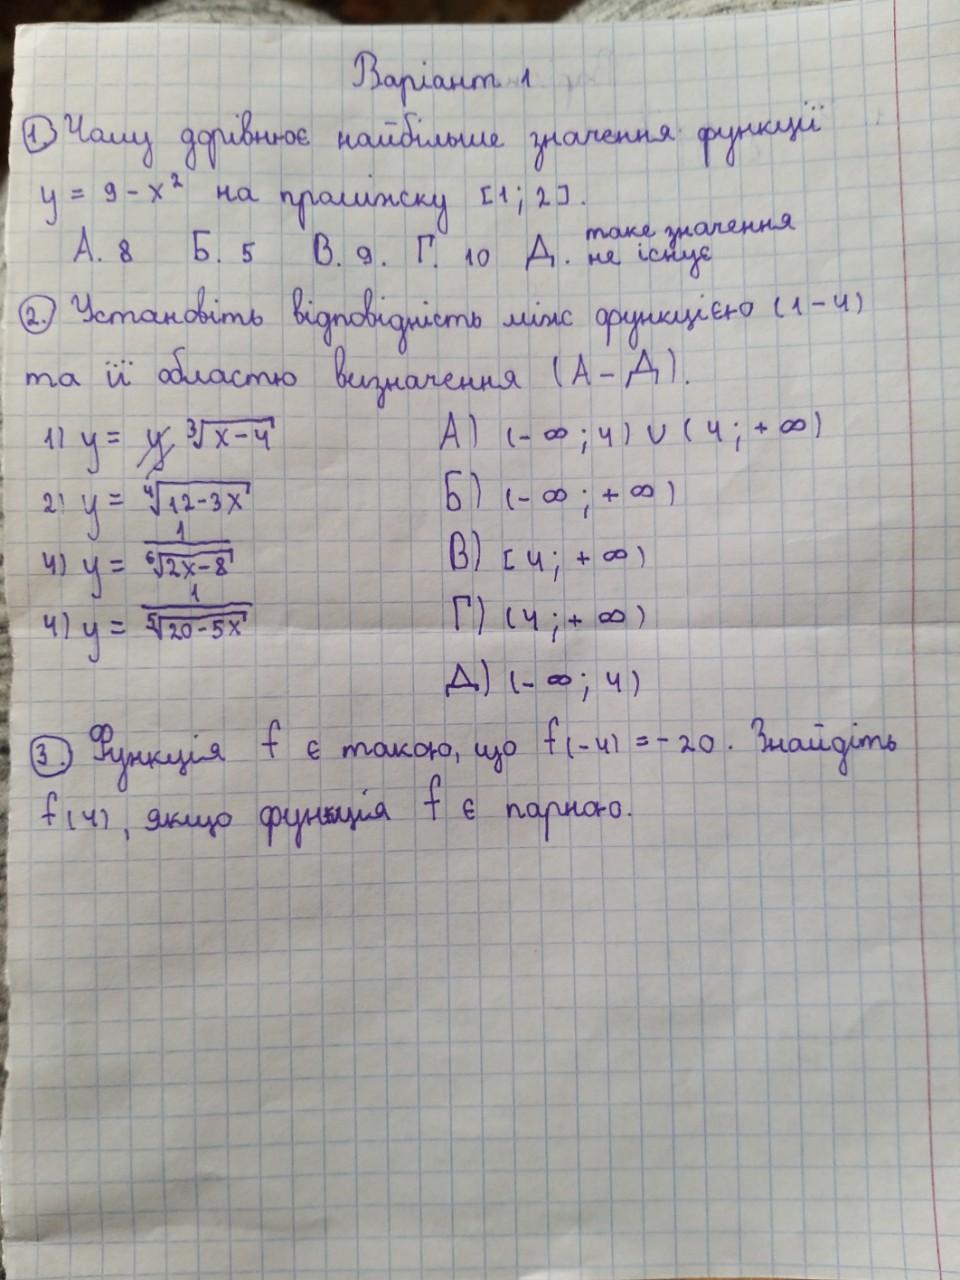 Варіант 1
1) Чому дорівнює найбільше значення функції
y = 9 - x² на проміжку [1; 2].
А. 8 Б. 5 В. 9. Г. 10 Д. таке значення не існує
2. Установіть відповідність між функцією (1-4)
та її областю визначення (А - Д).
1) y = ∛(x-4) А) (-∞; 4) ∪ (4; +∞)
2) y = ∜(12-3x) Б) (-∞; +∞)
4) y = 1/⁶√(2x-8) В) [4; +∞)
4) y = 1/⁵√(20-5x) Г) (4; +∞)
Д) (-∞; 4)
3. Функція f є такою, що f(-4) = -20. Знайдіть
f(4), якщо функція f є парною.